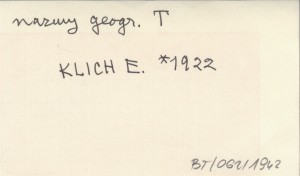 nazwy geogr. T
KLICH E. *1922
BT/062/1942